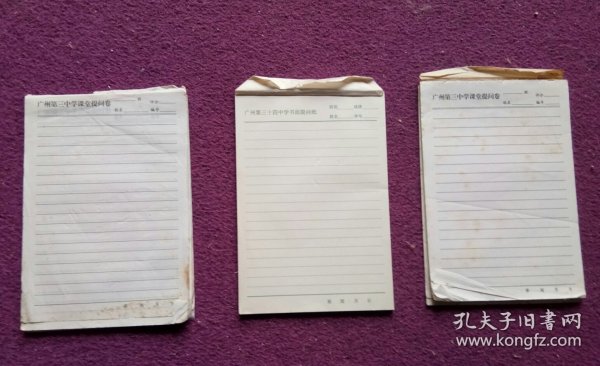 广州第三中学课堂提问卷
班
评分
姓名
编号
广州第三十四中学书面提问纸
班级
成绩
姓名
学号
第
周
月
日
广州第三中学课堂提问卷
班
评分
姓名
编号
第
周
月
日
孔夫子旧书网
www.kongfz.com